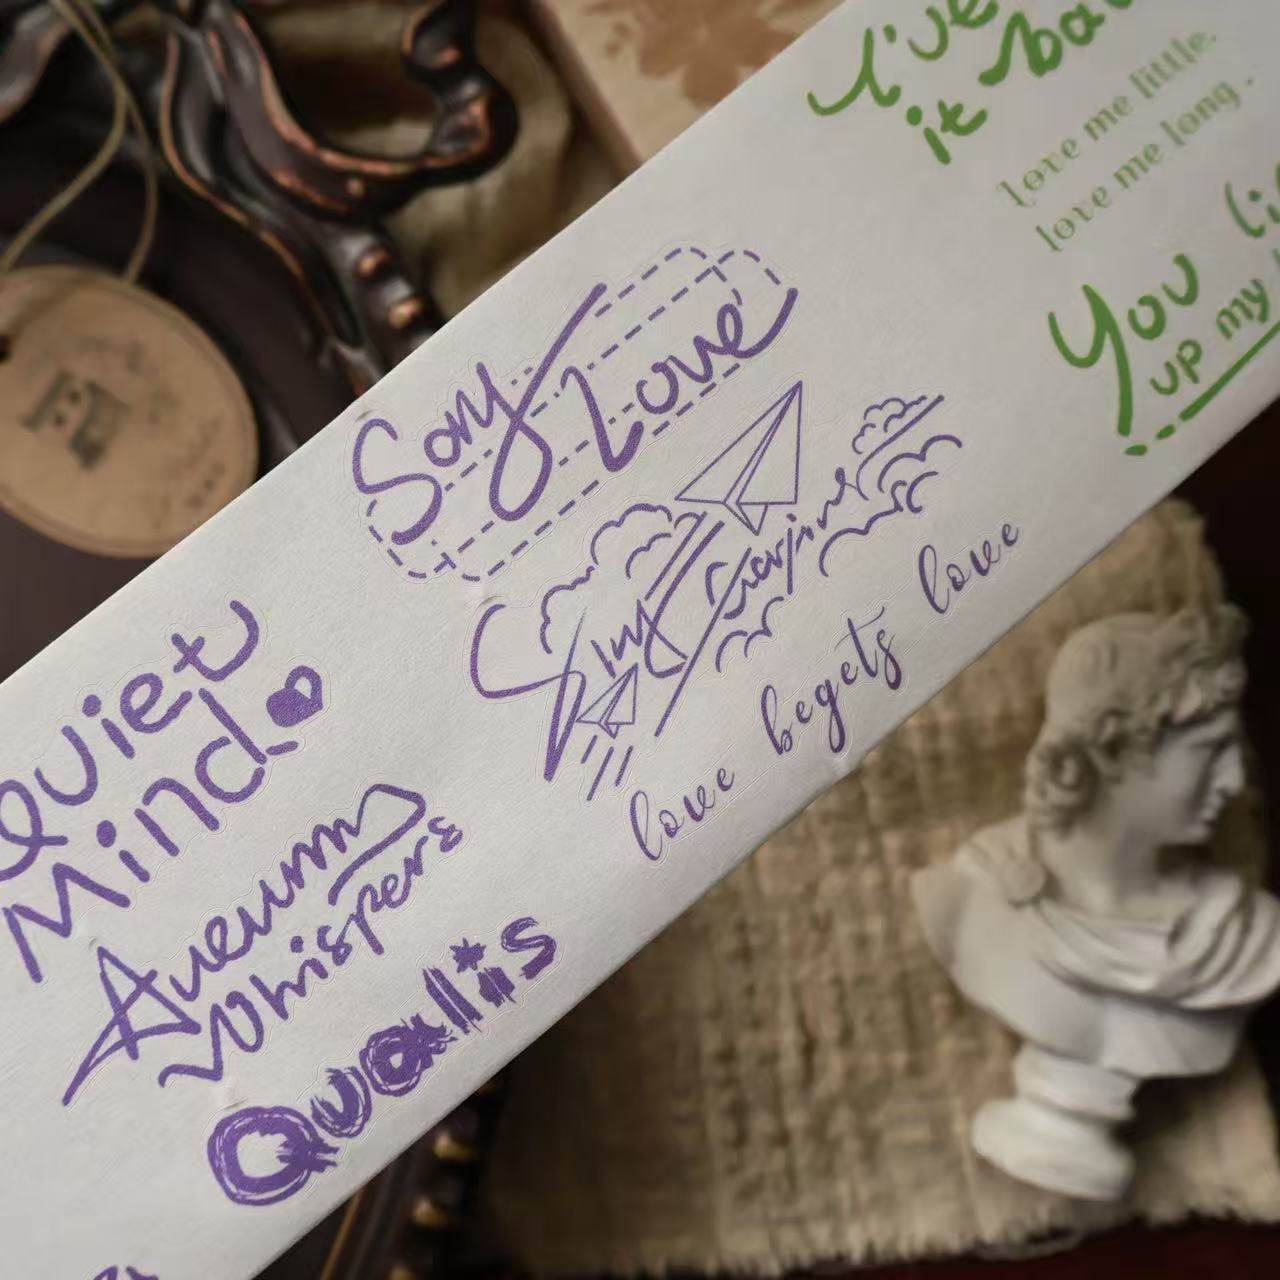 I've
it
love me little.
love me long.
You
up my
Sony
Love
love begets love
Quiet
Mind
Auewmn
Whispers
Quallis